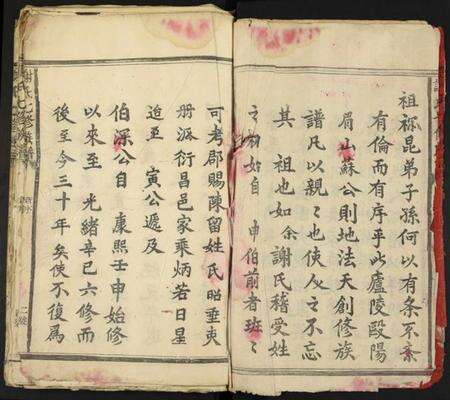 祖禰昆弟子孫何以有条不紊
有倫而有序乎此廬陵歐陽
眉山蘇公則地法天創修族
譜凡以親々也使人之不忘
其祖也如余謝氏稽受姓
之初如自申伯前者班々
可考郡賜陳留姓氏昭垂史
册派衍昌邑家乘炳若日星
迨至寅公遞及
伯深公自康熙壬申始修
以來至光緒辛巳六修而
後至今三十年矣使不復為